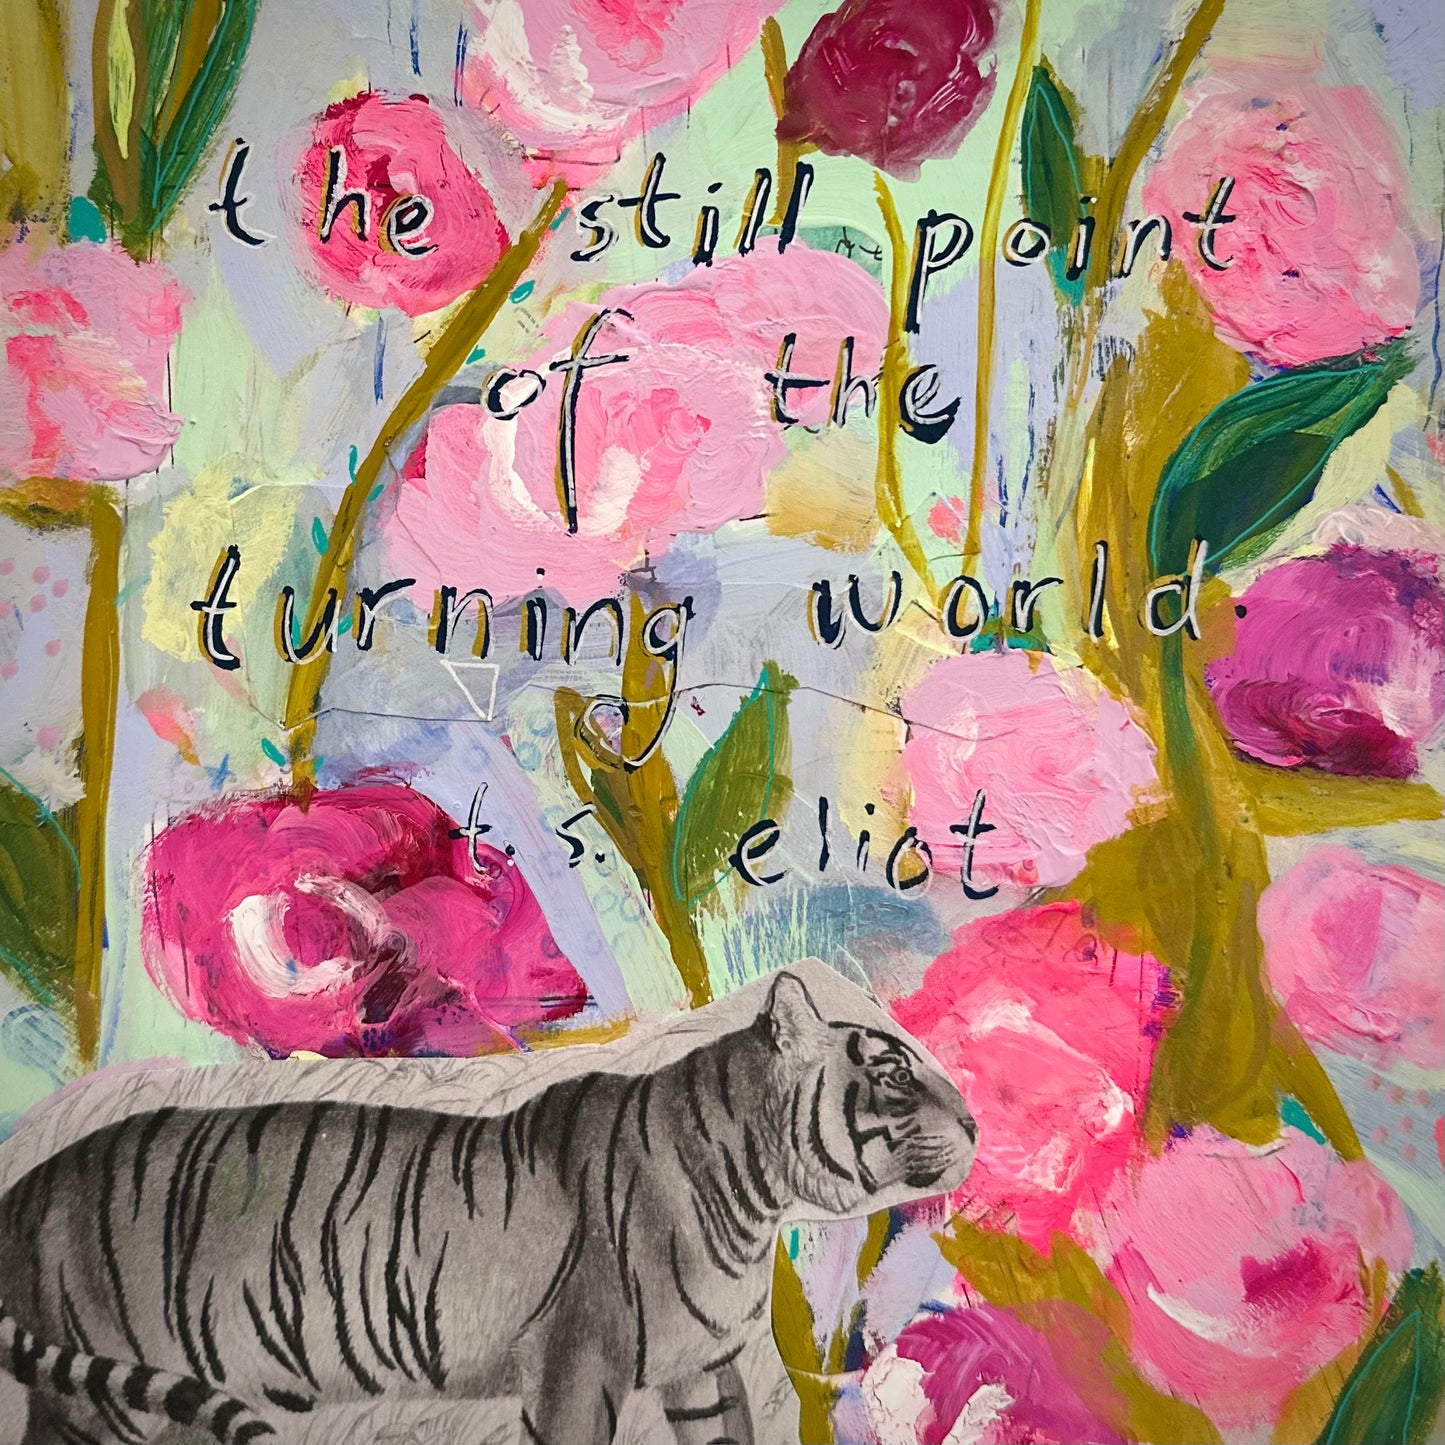 the still point
of the
turning world.
t.s. eliot